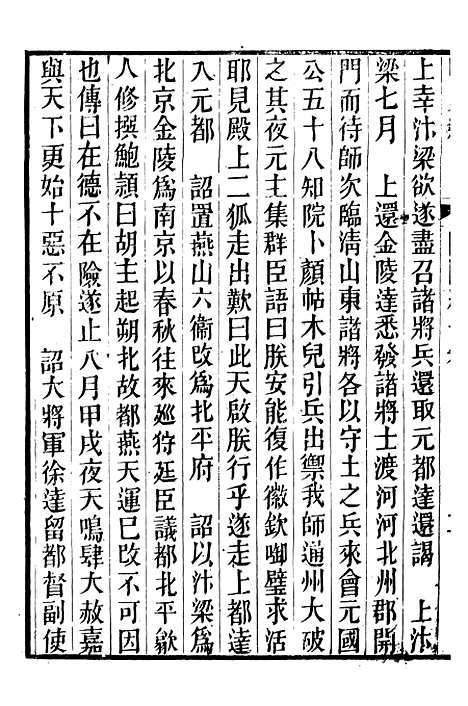 上幸汴梁欲遂盡召諸將兵還取元都達還謁　上汴
梁七月　上還金陵達悉發諸將士渡河河北州郡開
門而待師次臨淸山東諸將各以守土之兵來會元國
公五十八知院卜顏帖木兒引兵出禦我師通州大破
之其夜元主集群臣語曰朕安能復作徽欽啣璧求活
耶見殿上二狐走出歎曰此天啟朕行乎遂走上都達
入元都　詔置燕山六衞改爲北平府　詔以汴梁爲
北京金陵爲南京以春秋往來廵狩廷臣議都北平歙
人修撰鮑頴曰胡主起朔北故都燕天運巳改不可因
也傳曰在德不在險遂止八月甲戌夜天鳴肆大赦嘉
與天下更始十惡不原　詔大將軍徐達留都督副使